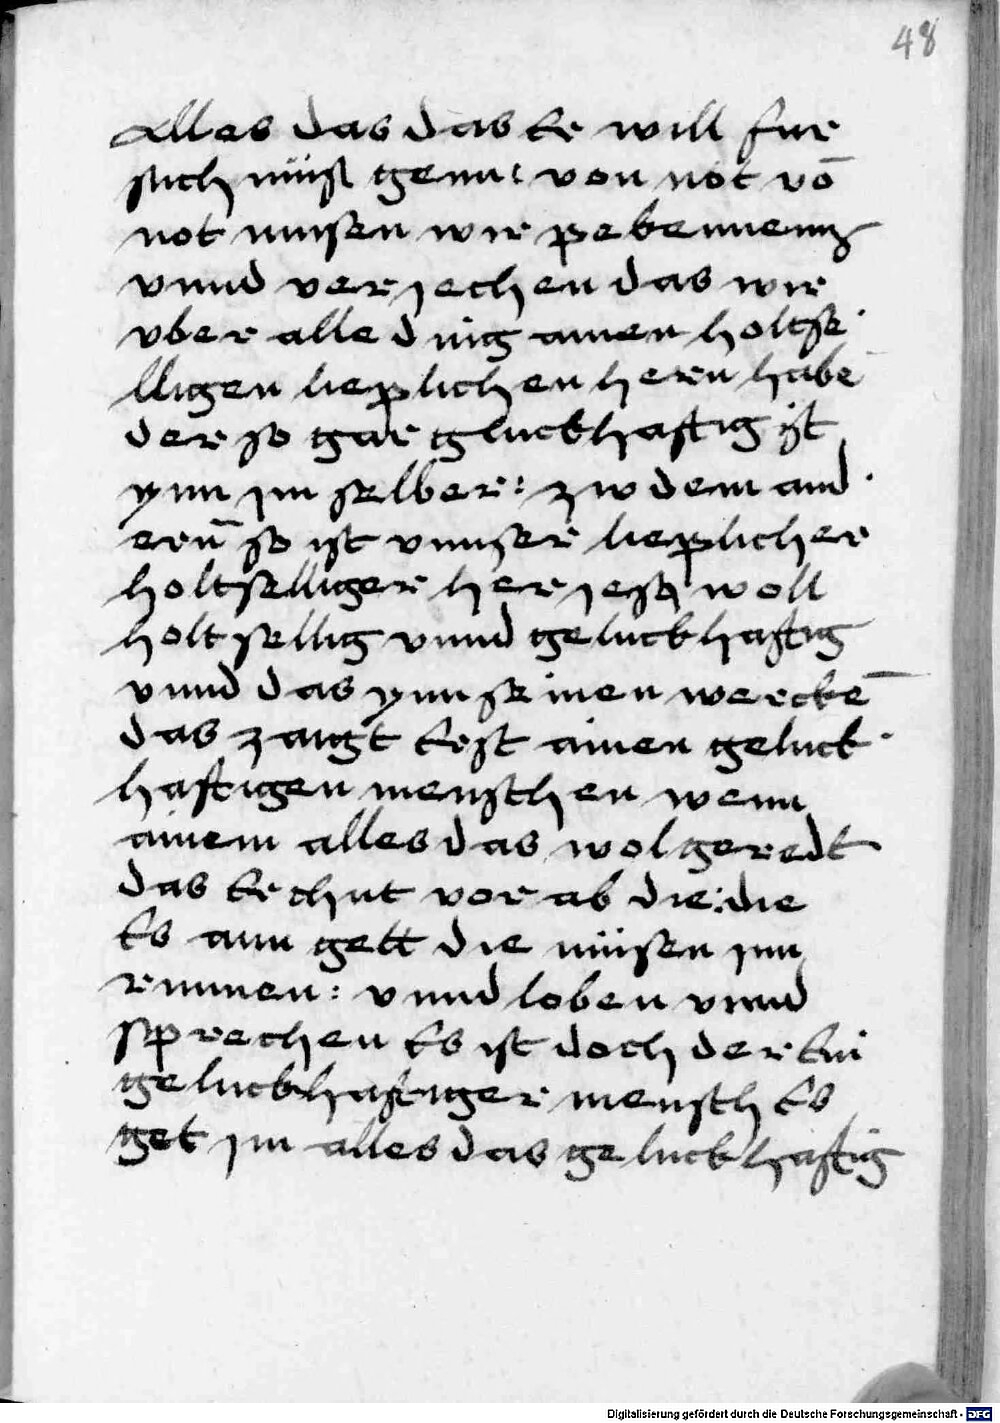 48
Alles das das Er will fur
sich müst genn: von not vō
not musen wir pekennenn
vnnd verjechen das wir
vber alle ding ainen holtse
lligen lieplichen hern habē
der so gar gluckhaftig ist
ynn im selber: zw dem and
ern̄ so ist vnnser lieplicher
holtselliger her jesus woll
holtsellig vnnd geluckhaftig
vnnd das ynn seinen werckē
das zaugt Erst ainen geluck
haftigen menschen wenn
ainem alles das wol geredt
das Er thut vor ab die: die
Es ann gett die müsen jnn
remmen: vnnd loben vnnd
sprechen Es ist doch der Ein
geluckhaftiger mensch Es
get jm alles das geluckhaftig
Digitalisierung gefördert durch die Deutsche Forschungsgemeinschaft - DFG